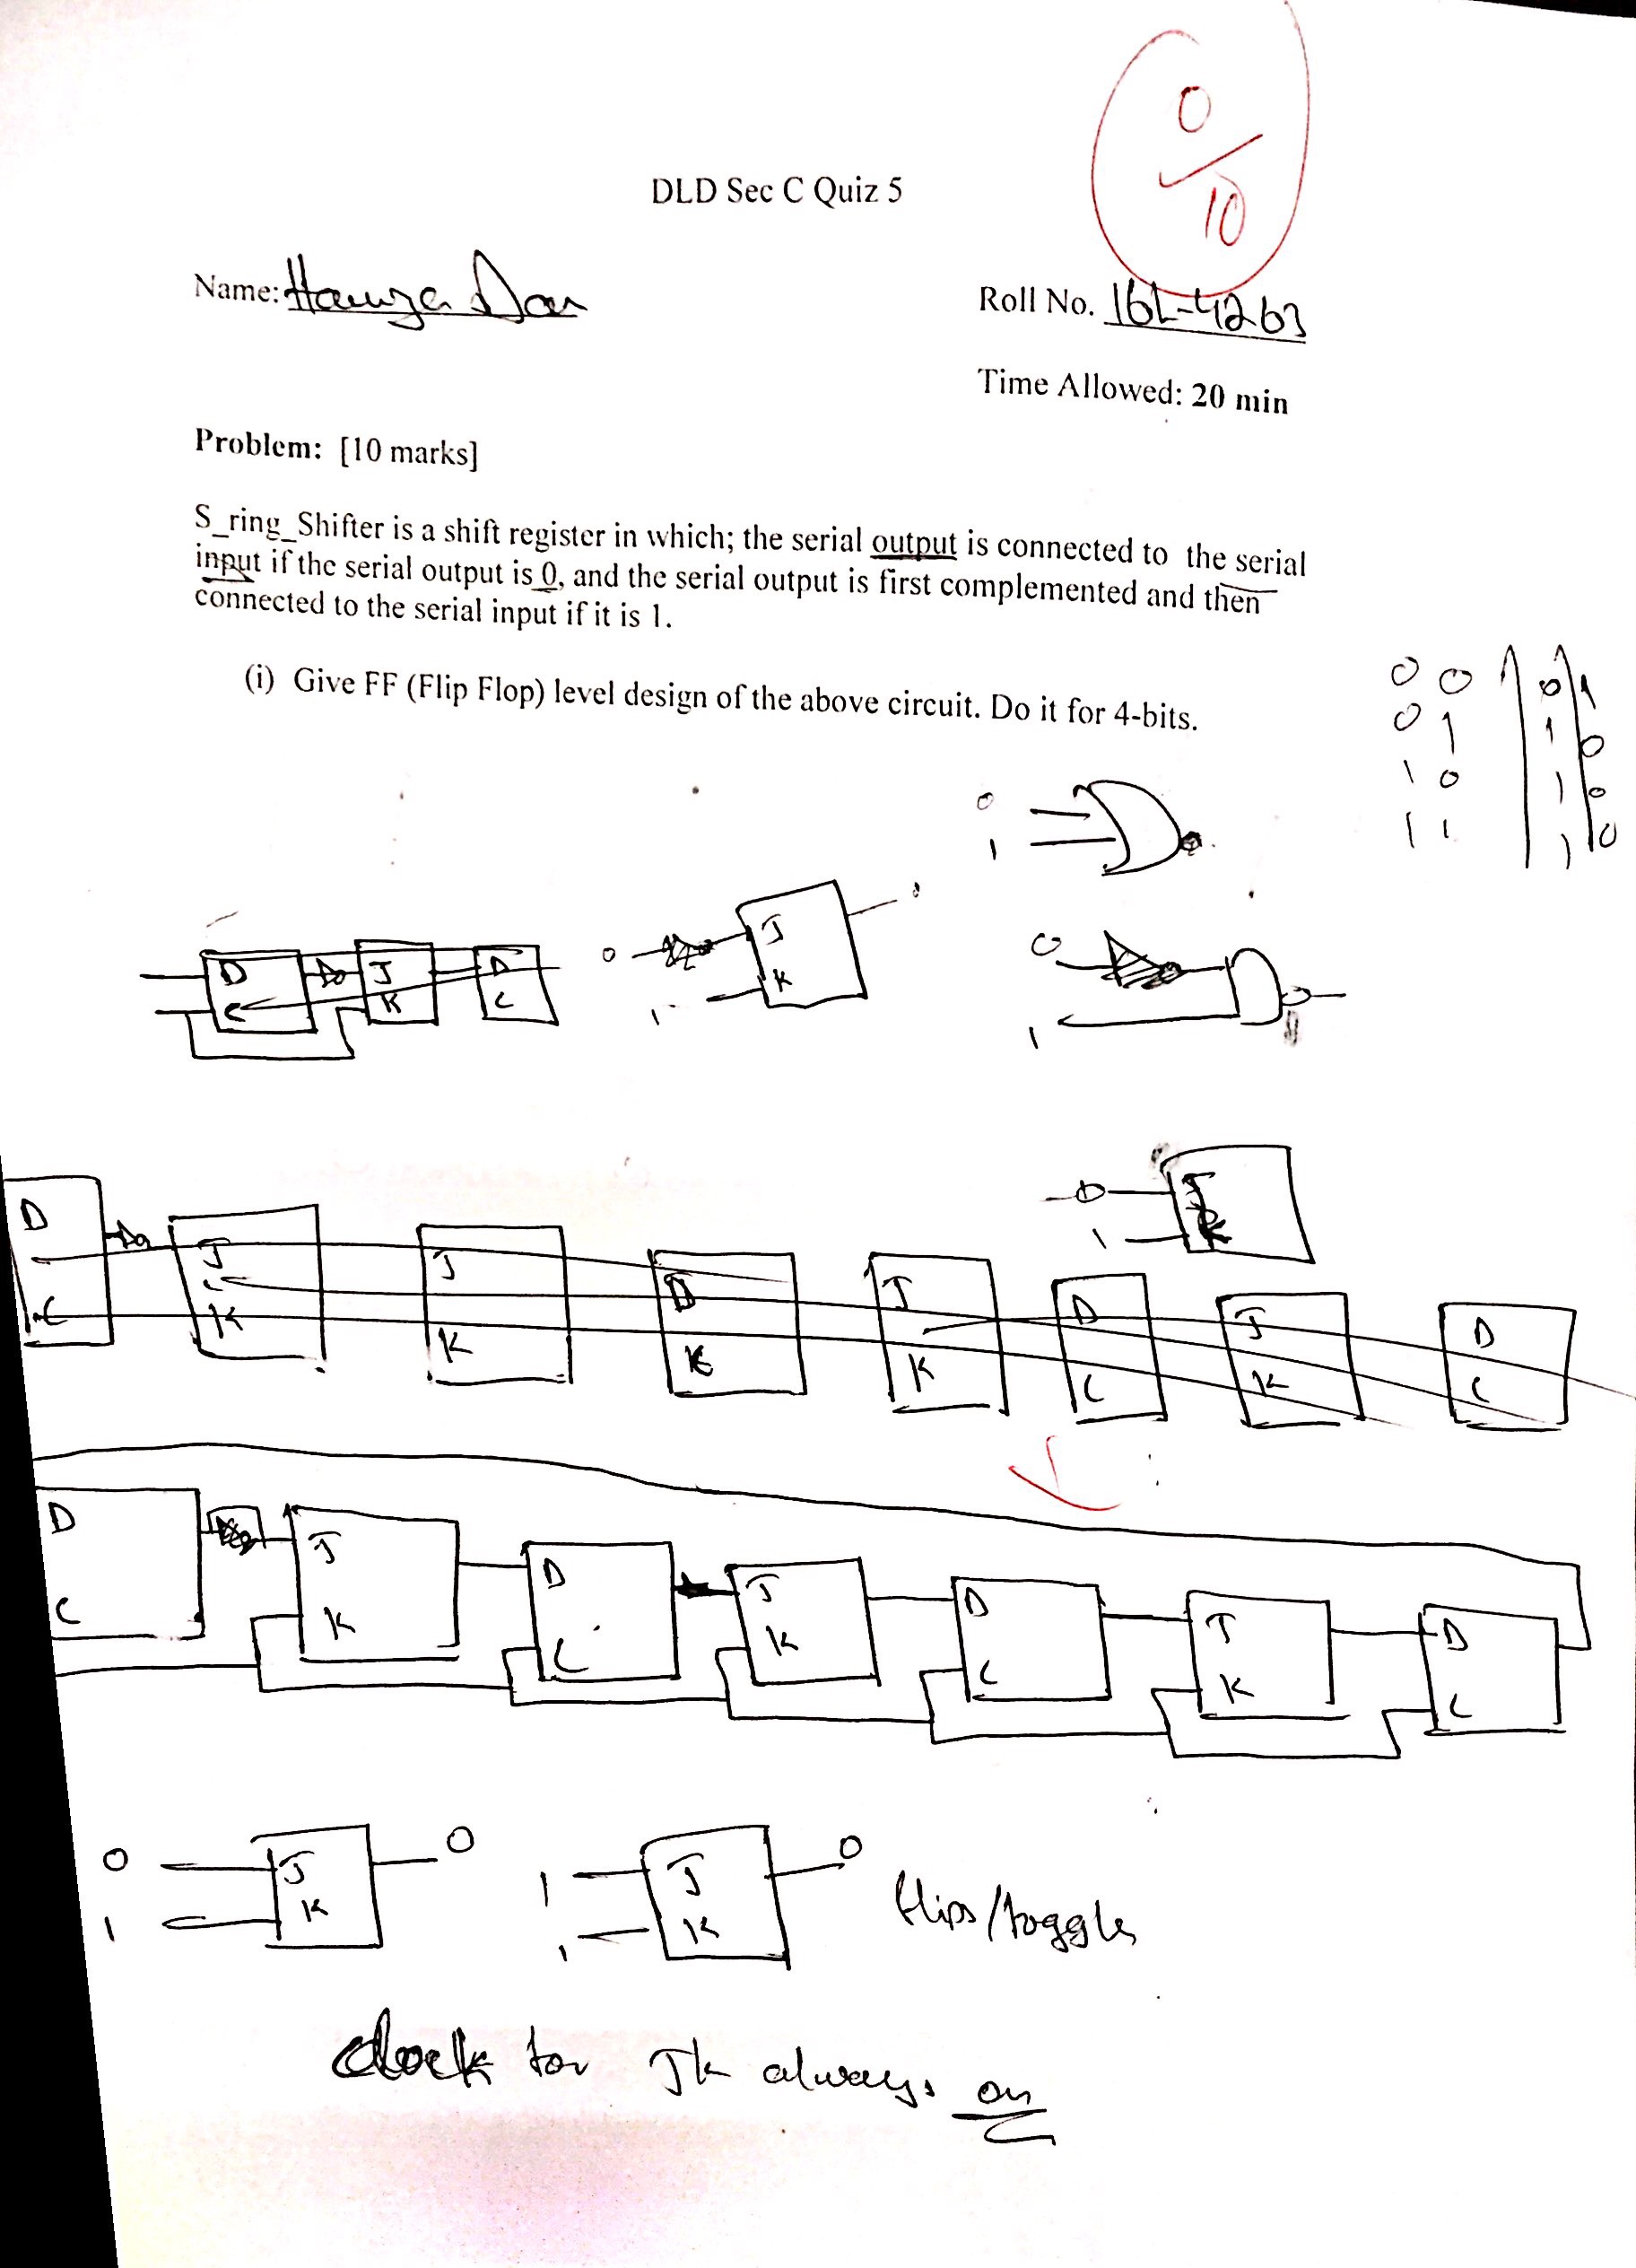 0
10
DLD Sec C Quiz 5
Name: Hamza Dar
Roll No. 16L-4263
Time Allowed: 20 min
Problem: [10 marks]
S_ring_Shifter is a shift register in which; the serial output is connected to the serial
input if the serial output is 0, and the serial output is first complemented and then
connected to the serial input if it is 1.
(i) Give FF (Flip Flop) level design of the above circuit. Do it for 4-bits.
0 0 0 1
0 1 1 0
1 0 1 0
1 1 1 0
0
1
D J D
C K C
0 J
1 K
0
1
0 J
1 K
D J J D J D J D
C K K K K C K C
D J D J D J D
C K C K C K C
0 J 0
1 K
1 J 0
1 K
flips/toggles
clock for JK always on